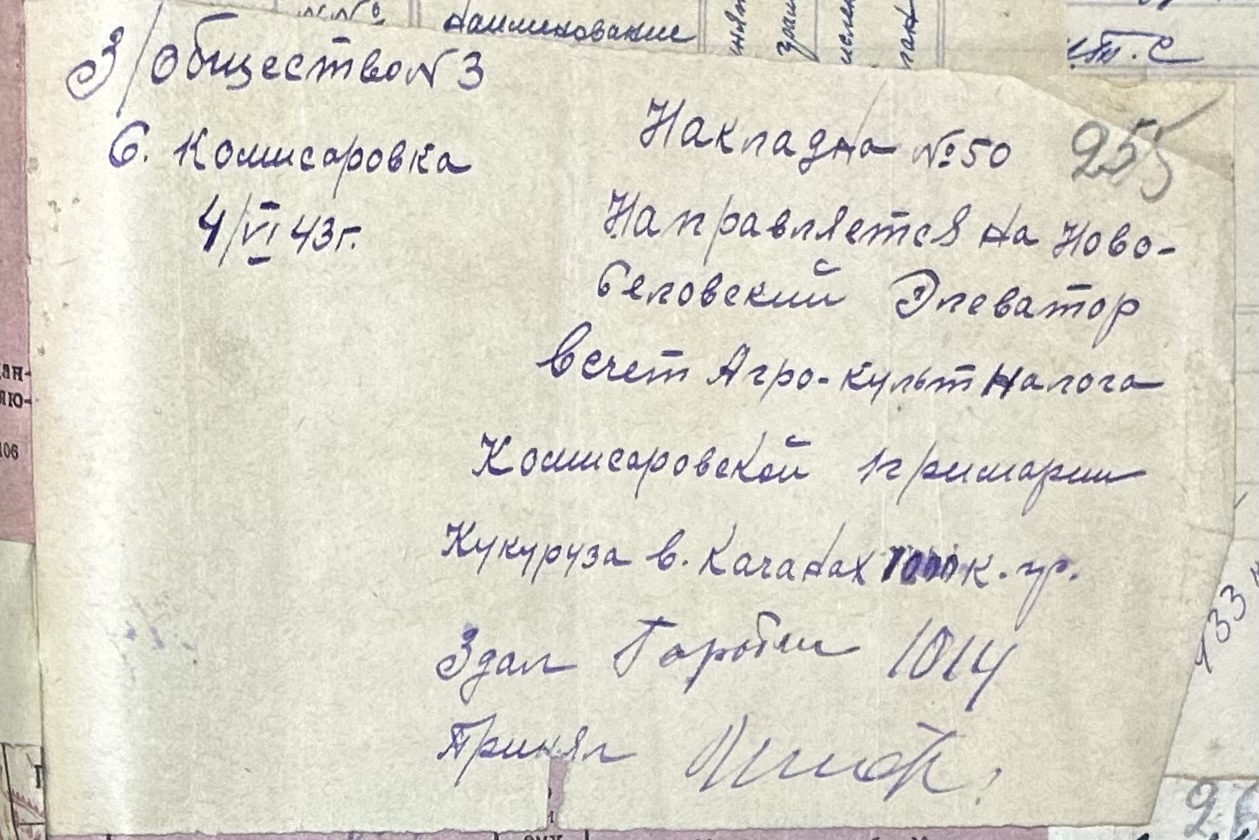 №№ Наименование
З/Общество N 3
С. Комисаровка
4/VI 43г.
Накладна № 50
255
Направляется на Ново-
Беловский Элеватор
в счет Агро-культ Налога
Комисаровской примарии
Кукуруза в. Качанах 1000 к. гр.
Здал Горобец 1014
Принял